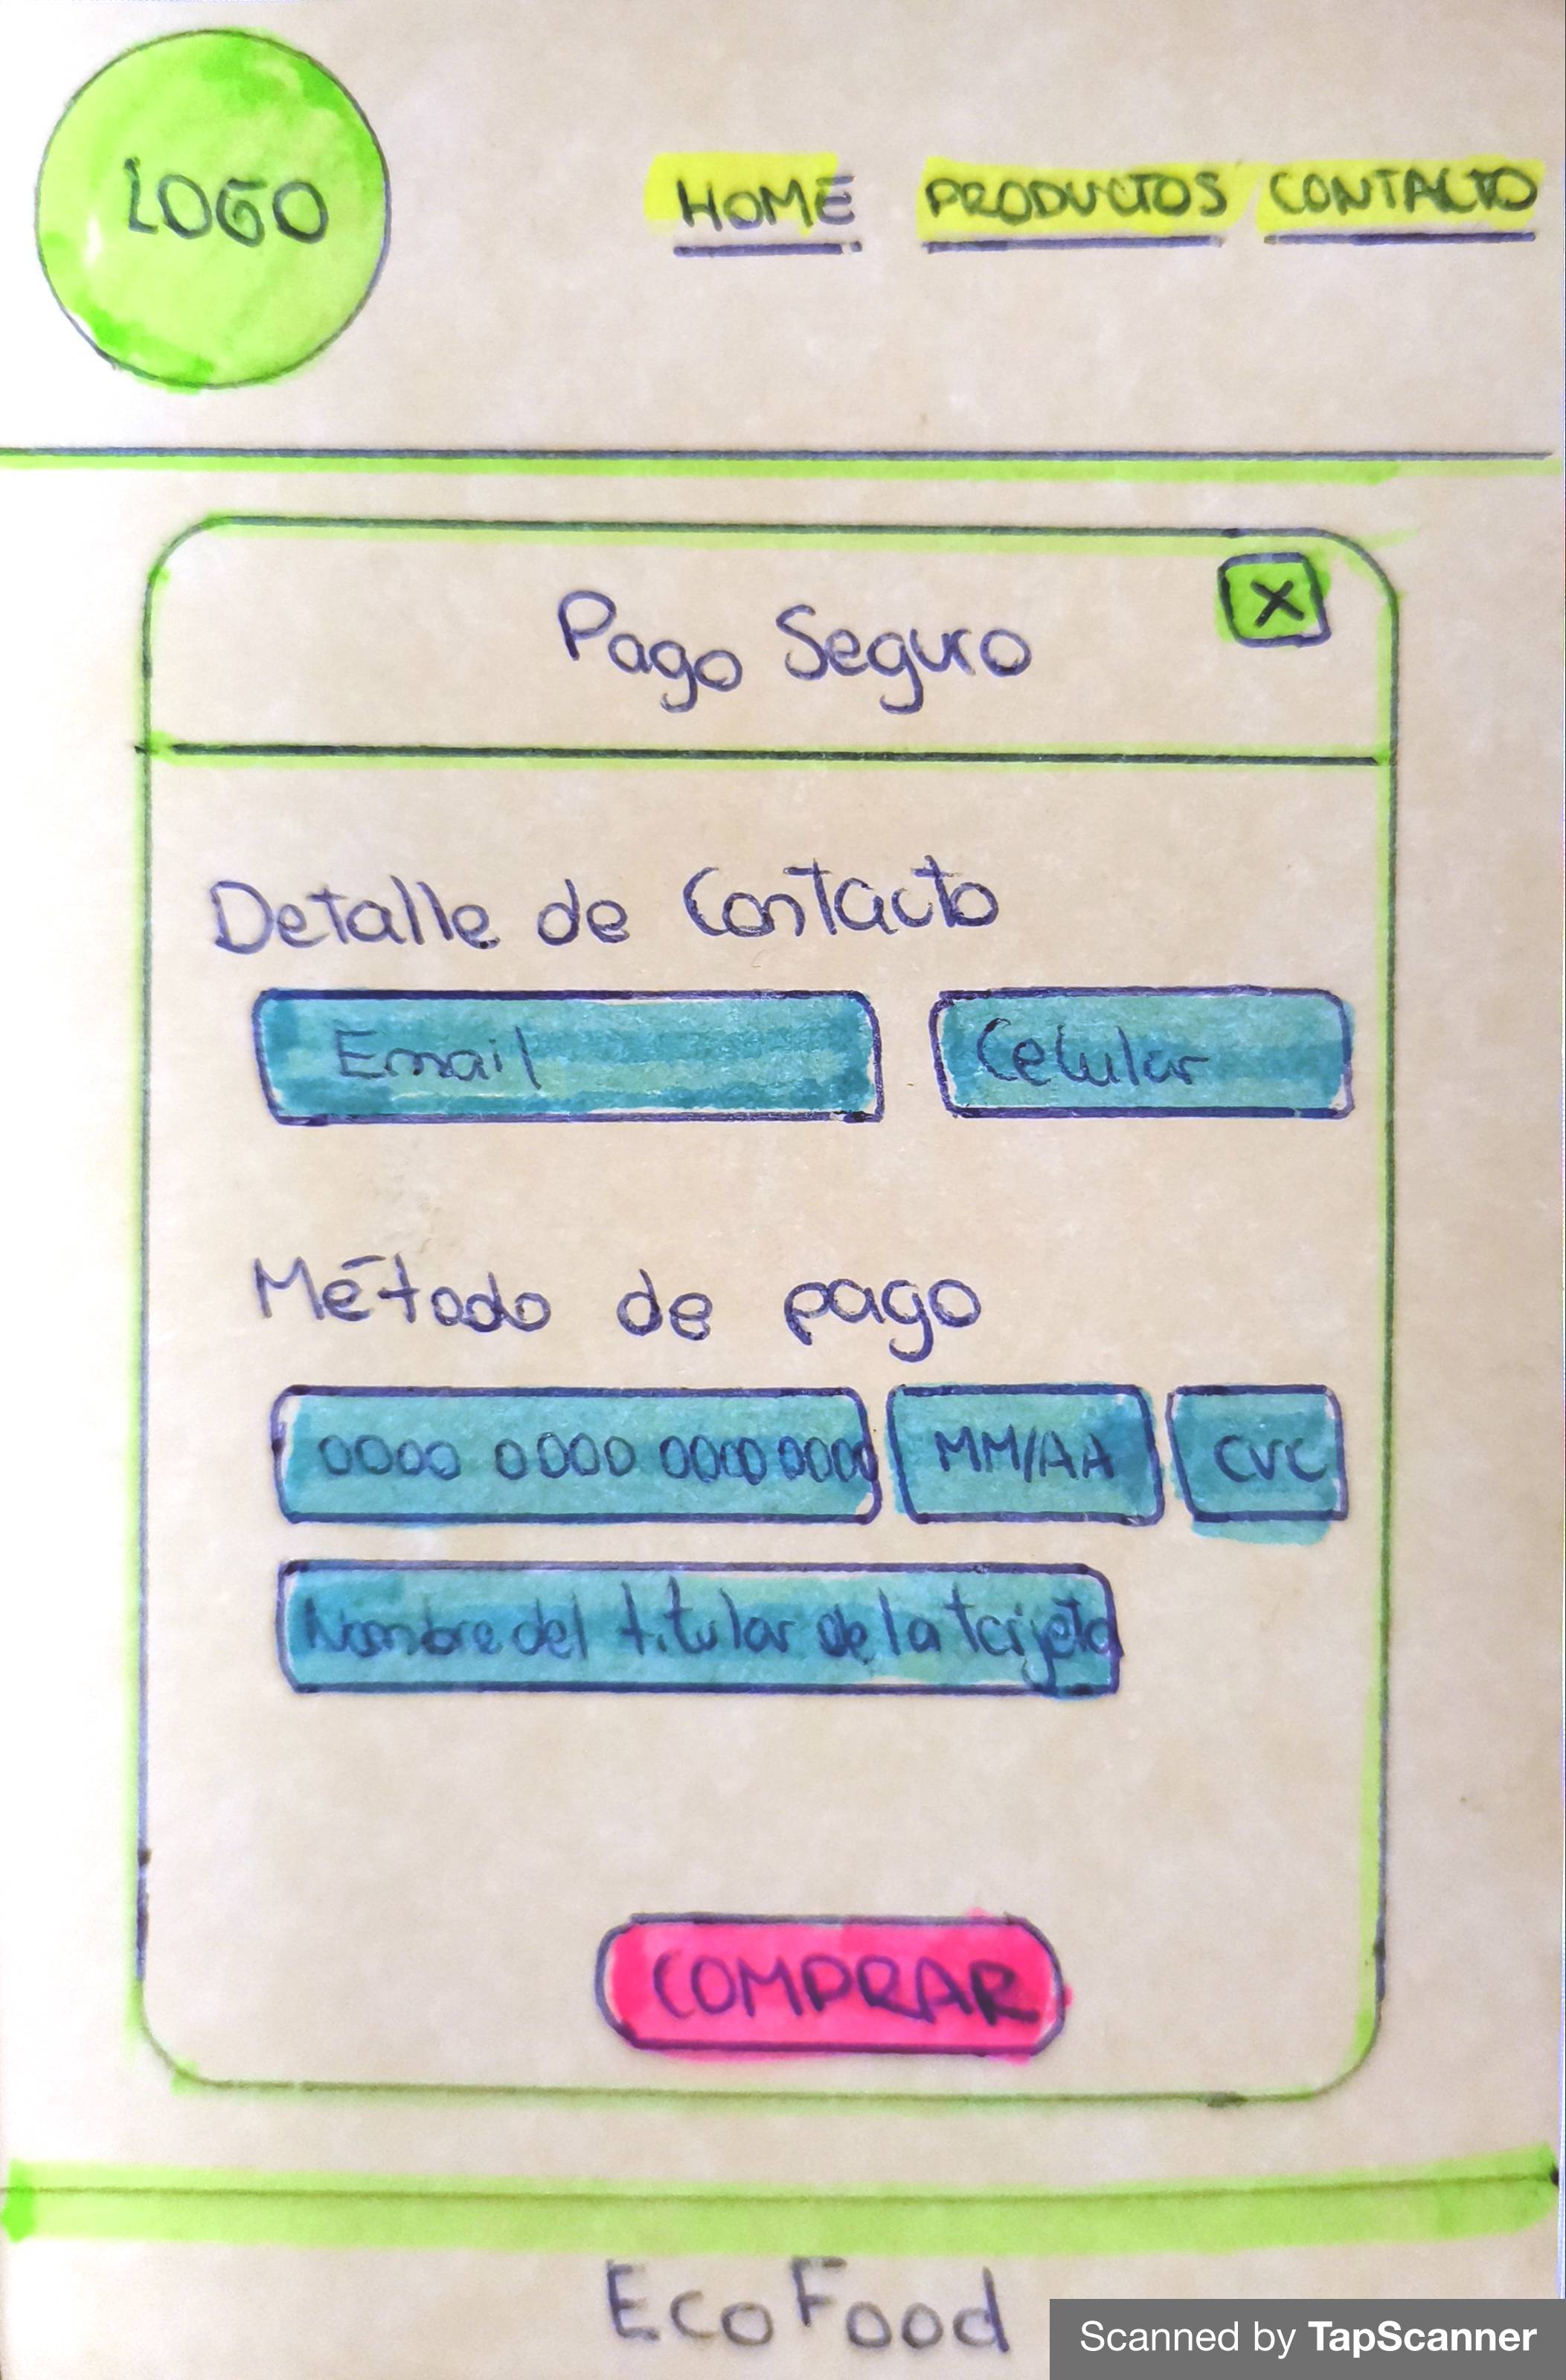 LOGO
HOME PRODUCTOS CONTACTO
Pago Seguro
X
Detalle de Contacto
Email Celular
Método de pago
0000 0000 0000 0000 MM/AA CVC
Nombre del titular de la tarjeta
COMPRAR
EcoFood
Scanned by TapScanner